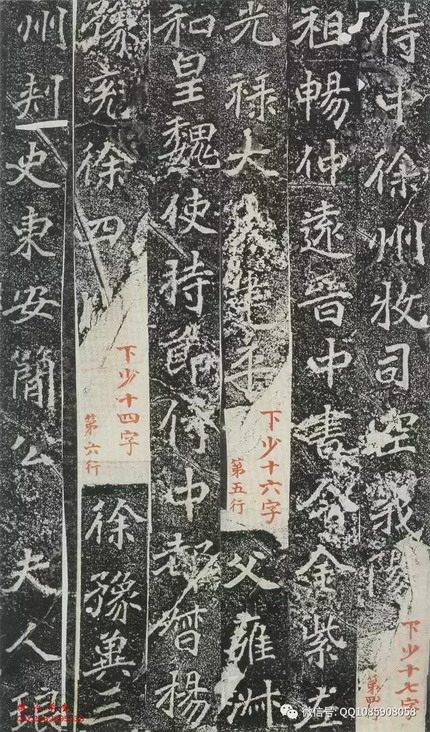 侍中徐州牧司空義陽
下少十七字
第四
祖暢仲遠晉中書令金紫左
光祿大夫建平
下少十六字
第五行
父雍淑
和皇魏使持節侍中都督揚
豫兗徐四
下少十四字
第六行
徐豫冀三
州刾史東安簡公夫人琅
微信号: QQ1085908058